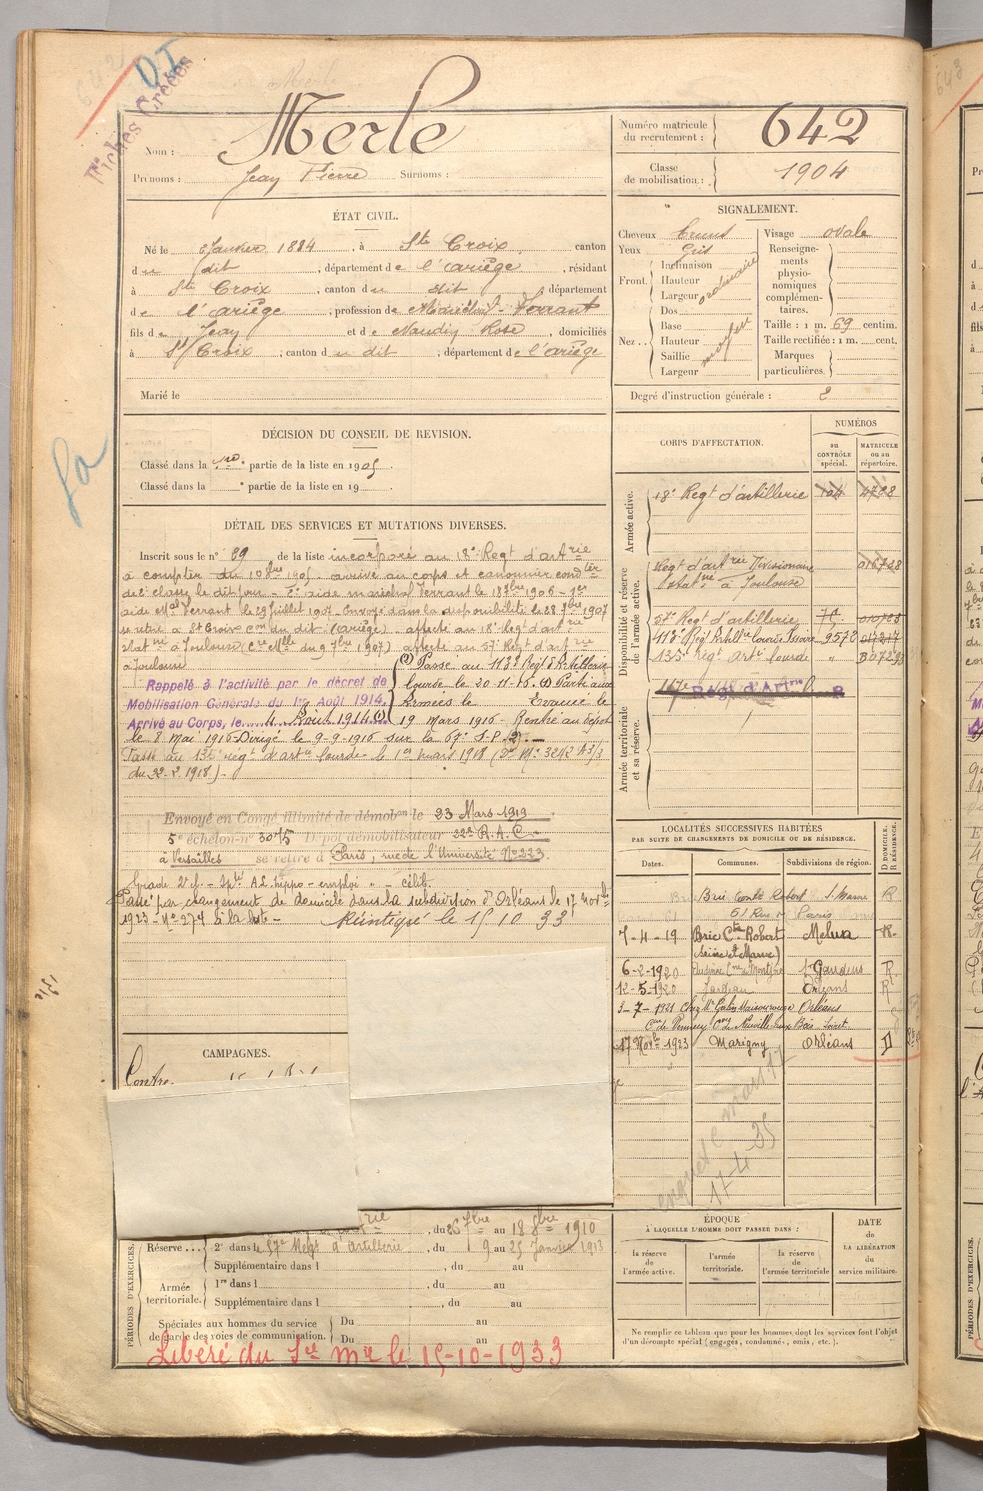 642
DI
Fiches Créées
Nom : Merle
Prénoms : Jean Pierre Surnoms :
Numéro matricule du recrutement : 642
Classe de mobilisation : 1904
ÉTAT CIVIL.
Né le Janvier 1884, à Ste Croix canton
du dit, département de l'ariège, résidant
à Ste Croix, canton du dit département
de l'ariège, profession de Maréchal-Ferrant
fils de Jean et de Naudin Rose, domiciliés
à St Croix, canton du dit, département de l'ariège
Marié le
SIGNALEMENT.
Cheveux bruns
Yeux Gris
Front. Inclinaison Hauteur Largeur ordinaire
Nez. Dos Base Hauteur Saillie Largeur moyen
Visage ovale
Renseignements physionomiques complémentaires.
Taille : 1 m. 69 centim.
Taille rectifiée : 1 m. cent.
Marques particulières.
Degré d'instruction générale : 2
DÉCISION DU CONSEIL DE REVISION.
Classé dans la 1re partie de la liste en 1905.
Classé dans la e partie de la liste en 19
La
DÉTAIL DES SERVICES ET MUTATIONS DIVERSES.
Inscrit sous le n° 89 de la liste incorporé au 18e Regt d'artrie
à compter du 10 8bre 1905. arrivé au corps et canonnier condter
de 2e classe le dit jour. 2e aide maréchal ferrant le 18 7bre 1906 - 1er
aide Mal ferrant le 29 juillet 1907 - Envoyé dans la disponibilité le 28 7bre 1907
se retire à St Croix Con du dit (ariège) affecté au 18e Regt d'artrie
à Toulouse affecté au 57e Regt d'artrie
à Toulouse
Rappelé à l'activité par le décret de
Mobilisation Générale du 1er Août 1914.
Arrivé au Corps, le 4 Août 1914
Passé au 118e Régt d'Artillerie
lourde le 20-11-15. Parti aux
Armées le Evacué le
19 mars 1916 - Rentré au dépôt
le 8 Mai 1916 - Dirigé le 9-9-1916 sur la 67e S.P.
Passé au 135e régt d'artie lourde le 1er mars 1918
du 22-2-1918).
Envoyé en Congé illimité de démobon le 23 Mars 1919
5e échelon n° 3075 Dépôt démobilisateur 22e R.A.C.
à Versailles se retire à Paris, rue de l'Université No 223
Grade 2e c. - Spté A.L. hippo - emploi " - célib.
Passé par changement de domicile dans la subdivision d'Orléans le 17 Novbre
1923 - No 274 à la liste - Réintégré le 15 10 33
CORPS D'AFFECTATION.
NUMÉROS
au CONTRÔLE spécial.
MATRICULE ou au répertoire.
Armée active.
18e Regt d'artillerie 104 4708
Disponibilité et réserve de l'armée active.
Regt d'artrie Divisionaire
à Toulouse
57e Regt d'artillerie 75
118e Regt Artillrie Lourde 9572
135e régt Artie lourde "
Armée territoriale et sa réserve.
Régt d'Artrie
LOCALITÉS SUCCESSIVES HABITÉES
PAR SUITE DE CHANGEMENTS DE DOMICILE OU DE RÉSIDENCE.
Dates. Communes. Subdivisions de région. D DOMICILE. R RÉSIDENCE.
Brie Comte Robert S. Marne R
Paris
7-4-19 Brie Cte Robert Melun R
(Seine et Marne)
6-2-1920 St Gaudens R
12-5-1920 Jargeau Orléans R
3-7-1921 Orléans
Neuville aux Bois Loiret
17 Novbre 1923 Marigny Orléans D
17-4-35
CAMPAGNES.
PÉRIODES D'EXERCICES.
du 26 7bre au 18 8bre 1910
Réserve... 2e dans le 57e Regt d'artillerie, du 9 au 25 Janvier 1913
Supplémentaire dans l , du au
Armée territoriale. 1re dans l , du au
Supplémentaire dans l , du au
Spéciales aux hommes du service de garde des voies de communication. Du au
Du au
Libéré du Sce Mre le 15-10-1933
ÉPOQUE
À LAQUELLE L'HOMME DOIT PASSER DANS :
la réserve de l'armée active. l'armée territoriale. la réserve de l'armée territoriale
DATE DE LA LIBÉRATION du service militaire.
Ne remplir ce tableau que pour les hommes dont les services font l'objet
d'un décompte spécial (engagés, condamnés, omis, etc.).